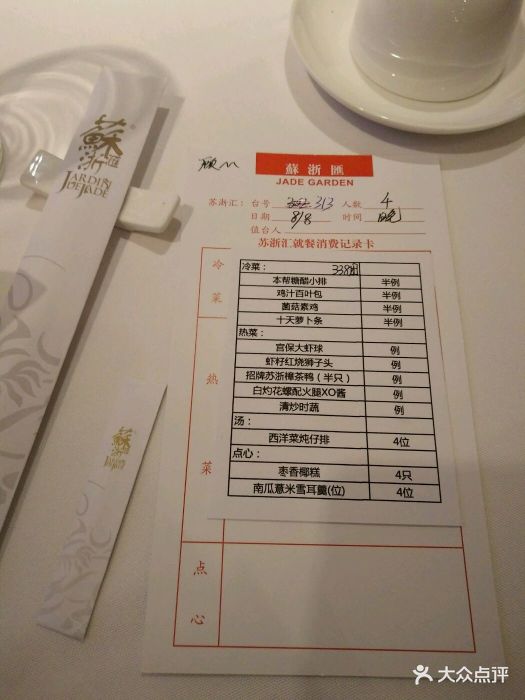 蘇
浙
匯
JARDIN
DE JADE
蘇
浙
匯
蘇浙匯
JADE GARDEN
苏浙汇: 台号 313 人数 4
日期 8/8 时间 晚
值台人
苏浙汇就餐消费记录卡
冷菜
热菜
点心
冷菜:
本帮糖醋小排 半例
鸡汁百叶包 半例
菌菇素鸡 半例
十天萝卜条 半例
热菜:
宫保大虾球 例
虾籽红烧狮子头 例
招牌苏浙樟茶鸭(半只) 例
白灼花螺配火腿XO酱 例
清炒时蔬 例
汤:
西洋菜炖仔排 4位
点心:
枣香椰糕 4只
南瓜薏米雪耳羹(位) 4位
大众点评